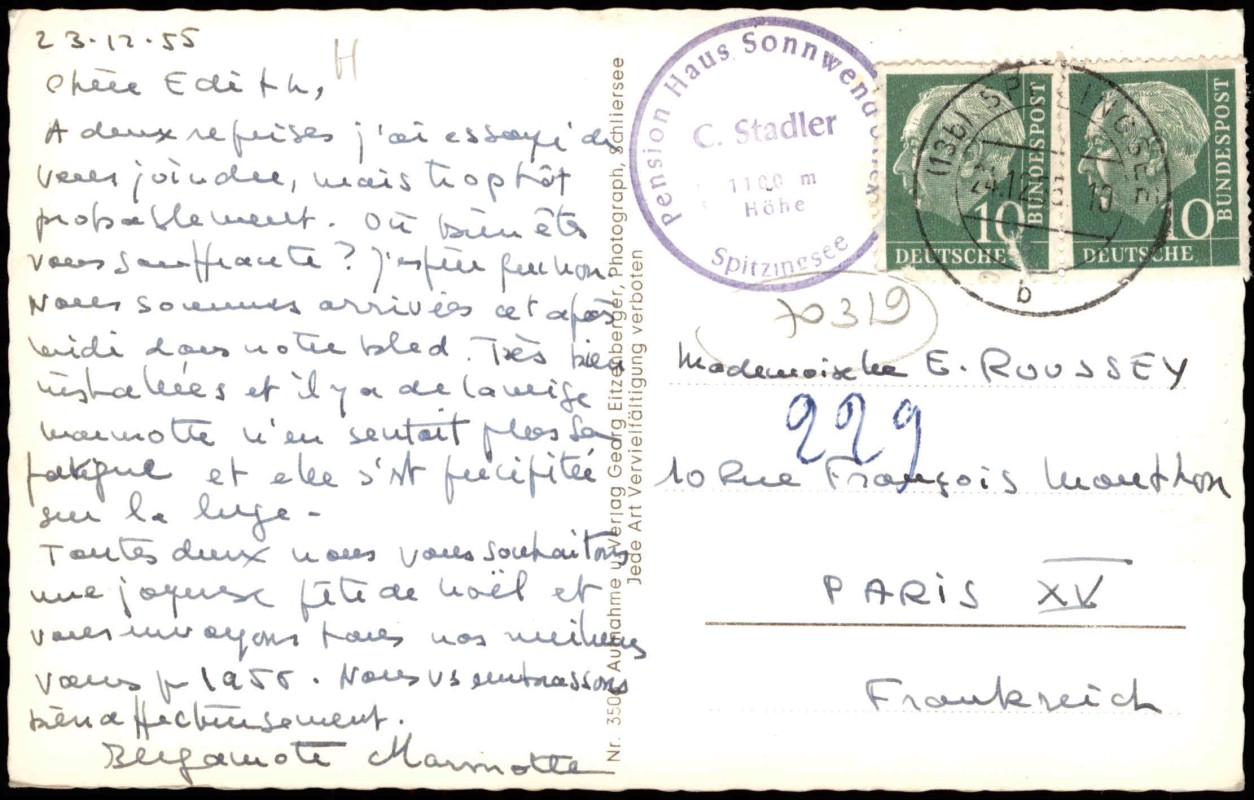 23-12-55
H
Chère Edith,
A deux reprises j'ai essayé de
vous joindre, mais trop tôt
probablement. Où bien êtes
vous souffrante? j'espère que non.
Nous sommes arrivées cet après
midi dans notre bled. Très bien
installées et il y a de la neige
marmotte n'en sentait plus sa
fatigue et elle s'est précipitée
sur la luge-
Toutes deux nous vous souhaitons
une joyeuse fête de noël et
vous envoyons tous nos meilleurs
vœux p 1956. Nous vs embrassons
bien affectueusement.
Bergamote Marmotte
Nr. 350 Aufnahme u. Verlag Georg Eitzenberger, Photograph, Schliersee
Jede Art Vervielfältigung verboten
Pension Haus Sonnwend
C. Stadler
1100 m
Höhe
Spitzingsee
BUNDESPOST
10
DEUTSCHE
BUNDESPOST
10
DEUTSCHE
(13b) SPITZINGSEE
b
70319
Mademoiselle E. ROUSSEY
229
10 Rue François Mouthon
PARIS XV
Frankreich